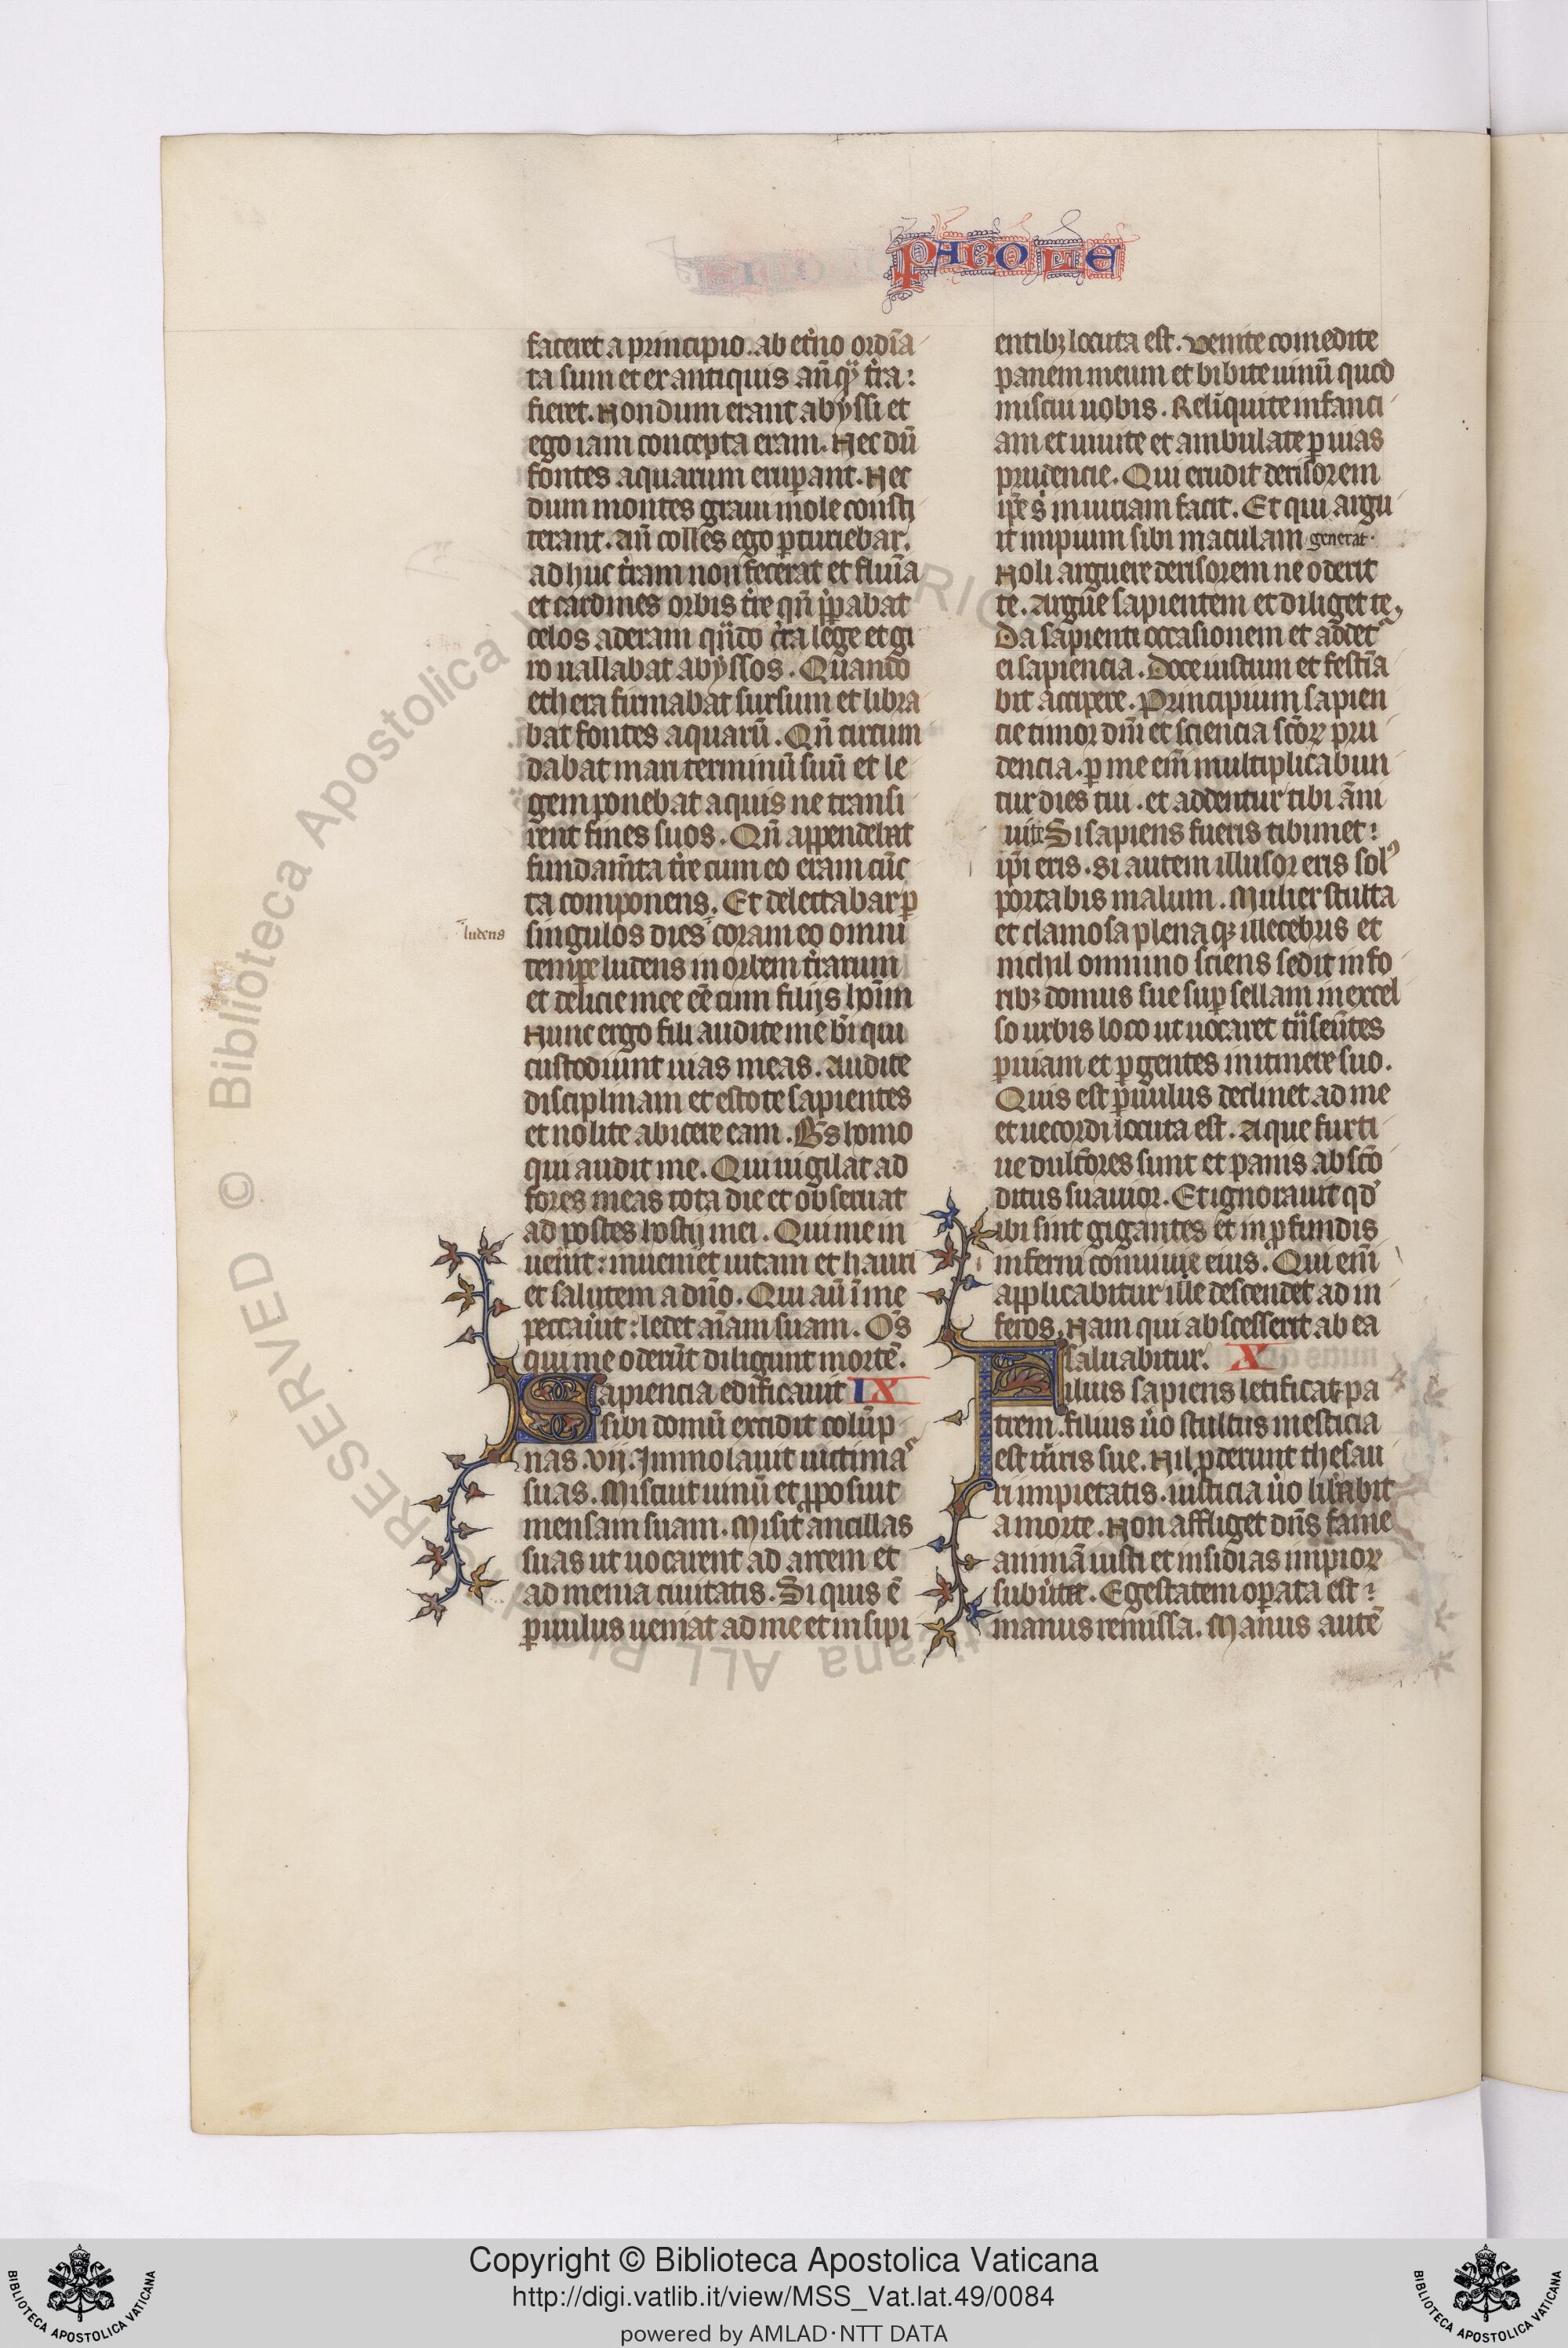 PAROLE
faceret a principio. ab et͛no ordīa
ta sum et ex antiquis an̄qͣ t͛ra:
fieret. Nondum erant abyssi et
ego iam concepta eram. Nec dū
fontes aquarum eruꝑant. Nec
dum montes graui mole consti
terant. an̄ colles ego ꝑturiebar.
adhuc t͛ram non fecerat et fluīa
et cardines orbis t͛re qn̄ p̄ꝑabat
celos aderam qͣn̄do c͛ta lege et gi
ro uallabat abyssos. Quando
ethera firmabat sursum et libra
bat fontes aquarū. Qn̄ circum
dabat mari terminū suū et le
gem ponebat aquis ne transi
rent fines suos. Qn̄ appendebat
fundam̄ta t͛re cum eo eram cūc
ta componens. Et delectabar ꝑ
ludens
singulos dies coram eo omni
temꝑe ludens in orbem t͛rarum
et delicie mee eē cum filijs hoīm
Nunc ergo fili audite me bn̄ qui
custodiunt uias meas. Audite
disciplinam et estote sapientes
et nolite abicere eam. Bs̄ homo
qui audit me. Qui uigilat ad
fores meas tota die et obseruat
ad postes hostij mei. Qui me in
uen͛it: inueniet uitam et hauri
et salutem a dn̄o. Qui aū ī me
peccau͛it: ledet aīam suam. Om̄s
qui me oderūt diligunt mortē.
Sapiencia edificauit IX
sibi domū excidit colūp
nas .vij. Immolauit uictimas
suas. Miscuit uinū et ꝓposuit
mensam suam. Misit ancillas
suas ut uocarent ad arcem et
ad menia ciuitatis. Si quis ē
ꝑuulus ueniat ad me et insipi
entibꝫ locuta est. Venite comedite
panem meum et bibite uinū quod
miscui uobis. Relinquite infanci
am et uiuite et ambulate ꝑ uias
prudencie. Qui erudit derisorem
ip̄e s͛ iniuriam facit. Et qui argu
it impium sibi maculam generat.
Noli arguere derisorem ne oderit
te. Argue sapientem et diliget te
Da sapienti occasionem et addet͛
ei sapiencia. Doce iustum et festīa
bit accipere. Principium sapien
cie timor dn̄i et sciencia sc̄oꝝ pru
dencia. ꝑ me em̄ multiplicabun
tur dies tui. et addentur tibi āni
uite Si sapiens fueris tibimet:
ip̄i eris. si autem illusor eris solꝰ
portabis malum. Mulier stulta
et clamosa plenaqꝫ illecebris et
nichil omnino sciens sedit in fo
ribꝫ domus sue suꝑ sellam in excel
so urbis loco ut uocaret tͣnseūtes
ꝑ uiam et ꝑgentes in itinere suo.
Quis est ꝑuulus declinet ad me
et uecordi locuta est. Aque furti
ue dulc̄ores sunt et panis abscō
ditus suauior. Et ignorauit qd̓
ibi sint gigantes et in ꝓfundis
inferni conuiuie eius. Qui em̄
applicabitur ille descendet ad in
feros. Nam qui abscesserit ab ea
saluabitur. X
Filius sapiens letificat pa
trem. filius u͛o stultus mesticia
est mr̄is sue. Nil ꝓderunt thesau
ri impietatis. iusticia u͛o lib͛abit
a morte. Non affliget dn̄s fame
animā iusti et insidias impioꝝ
subu͛tet. Egestatem oꝑata est:
manus remissa. Manus autē
Copyright © Biblioteca Apostolica Vaticana
http://digi.vatlib.it/view/MSS_Vat.lat.49/0084
powered by AMLAD·NTT DATA